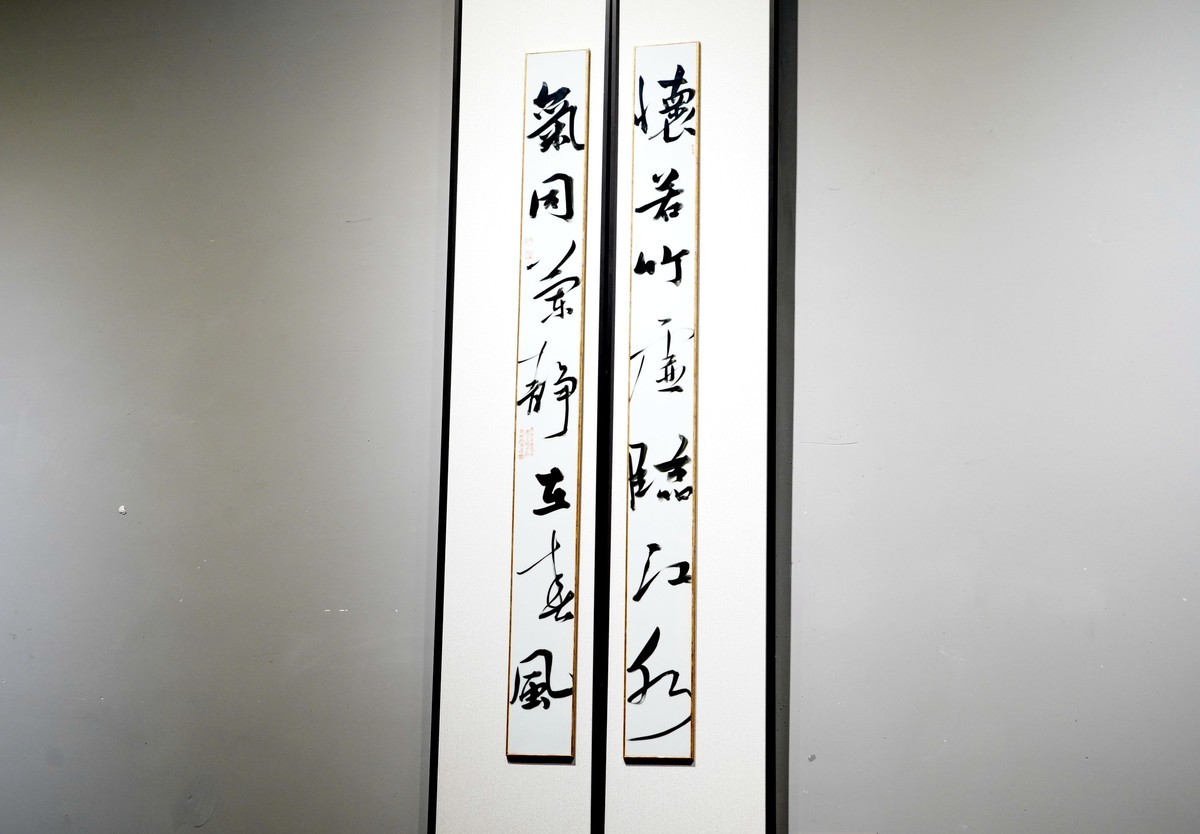 懷若竹虛臨江水
氣同蘭靜在春風